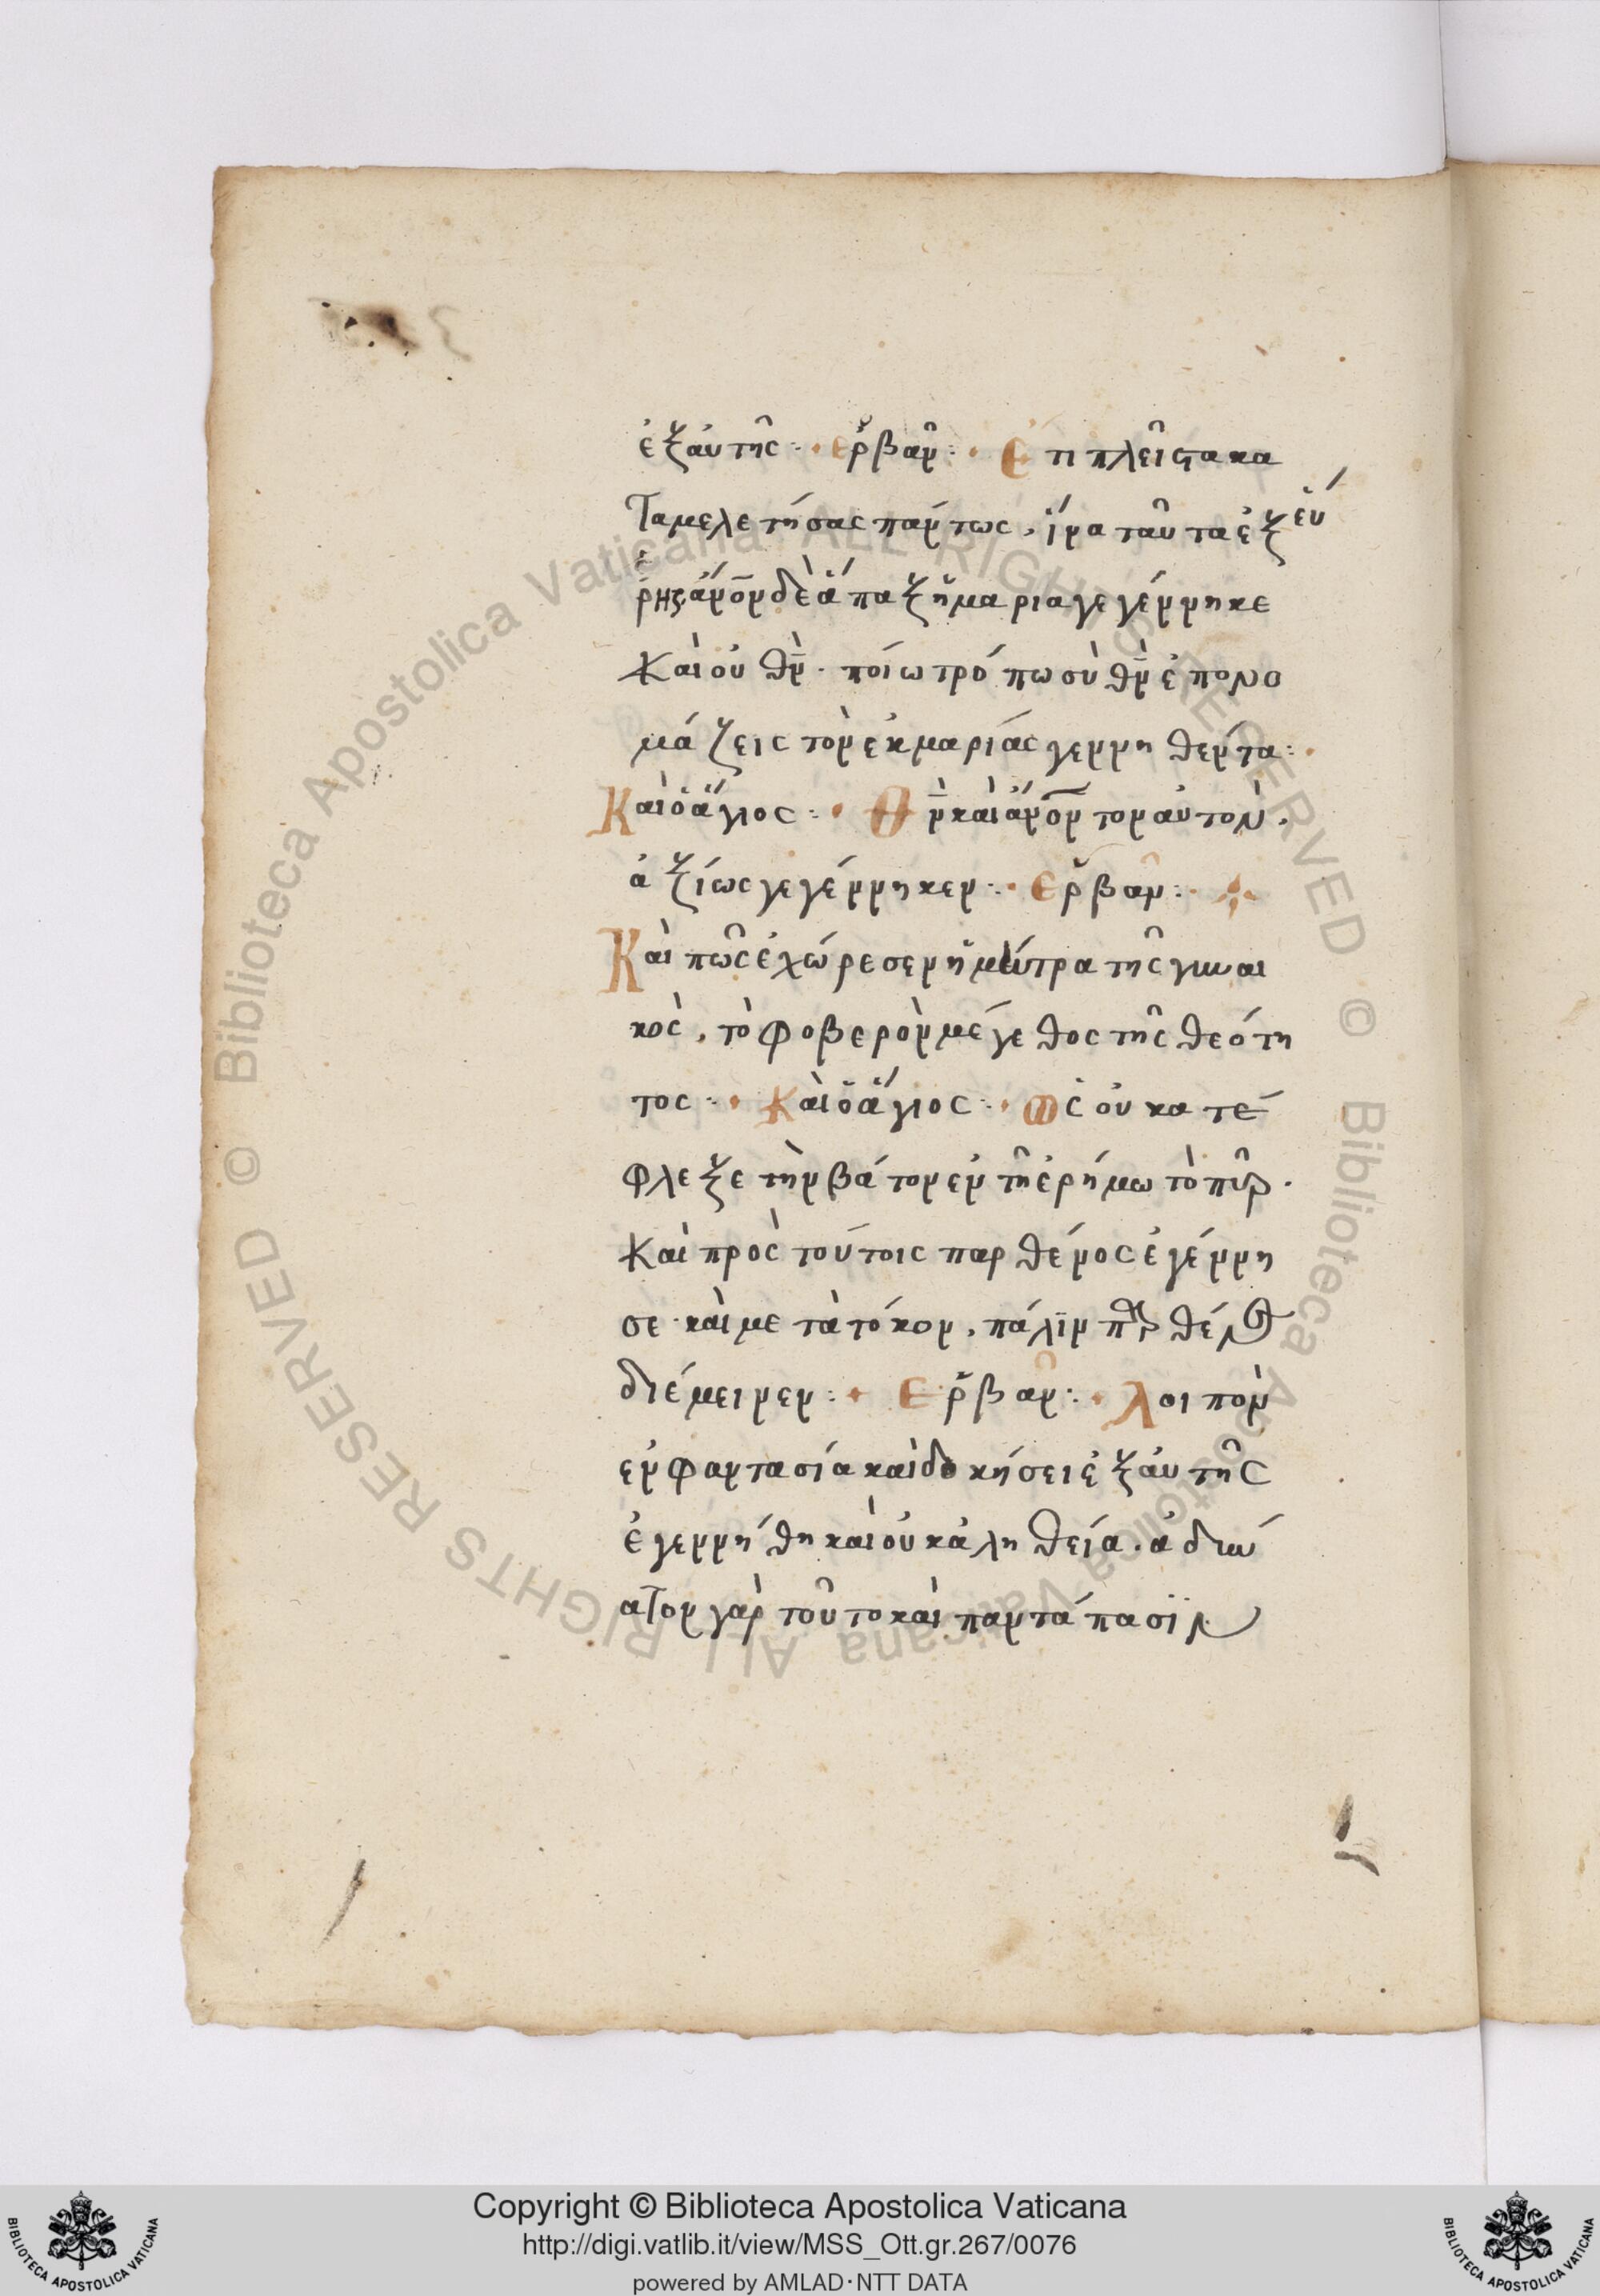 ἐξ αὐτῆς :· ἑρβᾶν :· Ἔτι πλεῖστα κα
ταμελετήσας πάντως, ἵνα ταῦτα ἐξεύ
ρης ἄνον δὲ ἅπαξ ἡ μαρία γεγέννηκε
καὶ οὐ θν. ποίω τρόπω σὺ θν ἐπονο
μάζεις τὸν ἐκ μαρίας γεννηθέντα :·
Καὶ ὁ ἅγιος :· Θν καὶ ἄνον τον αὐτὸν,
ἀξίως γεγέννηκεν :· Ἑρβᾶν :·
Καὶ πῶς ἐχώρεσεν ἡ μήτρα τῆς γυναι
κὸς, τὸ φοβερὸν μέγεθος τῆς θεότη
τος :· Καὶ ὁ ἅγιος :· Ὡς οὐ κατέ
φλεξε τὴν βάτον ἐν τῇ ἐρήμω τὸ πῦρ.
Καὶ πρὸς τούτοις παρθένος ἐγέννη
σε· καὶ μετὰ τόκον, πάλιν παρθένος
διέμεινεν :· Ἑρβᾶν :· Λοιπὸν
ἐν φαντασία καὶ δοκήσει ἐξ αὐτῆς
ἐγεννήθη καὶ οὐκ ἀληθεία. ἀδύν
ατον γὰρ τοῦτο καὶ παντάπασιν
Copyright © Biblioteca Apostolica Vaticana
http://digi.vatlib.it/view/MSS_Ott.gr.267/0076
powered by AMLAD·NTT DATA
BIBLIOTECA APOSTOLICA VATICANA
BIBLIOTECA APOSTOLICA VATICANA
© Biblioteca Apostolica Vaticana ALL RIGHTS RESERVED
© Biblioteca Apostolica Vaticana ALL RIGHTS RESERVED